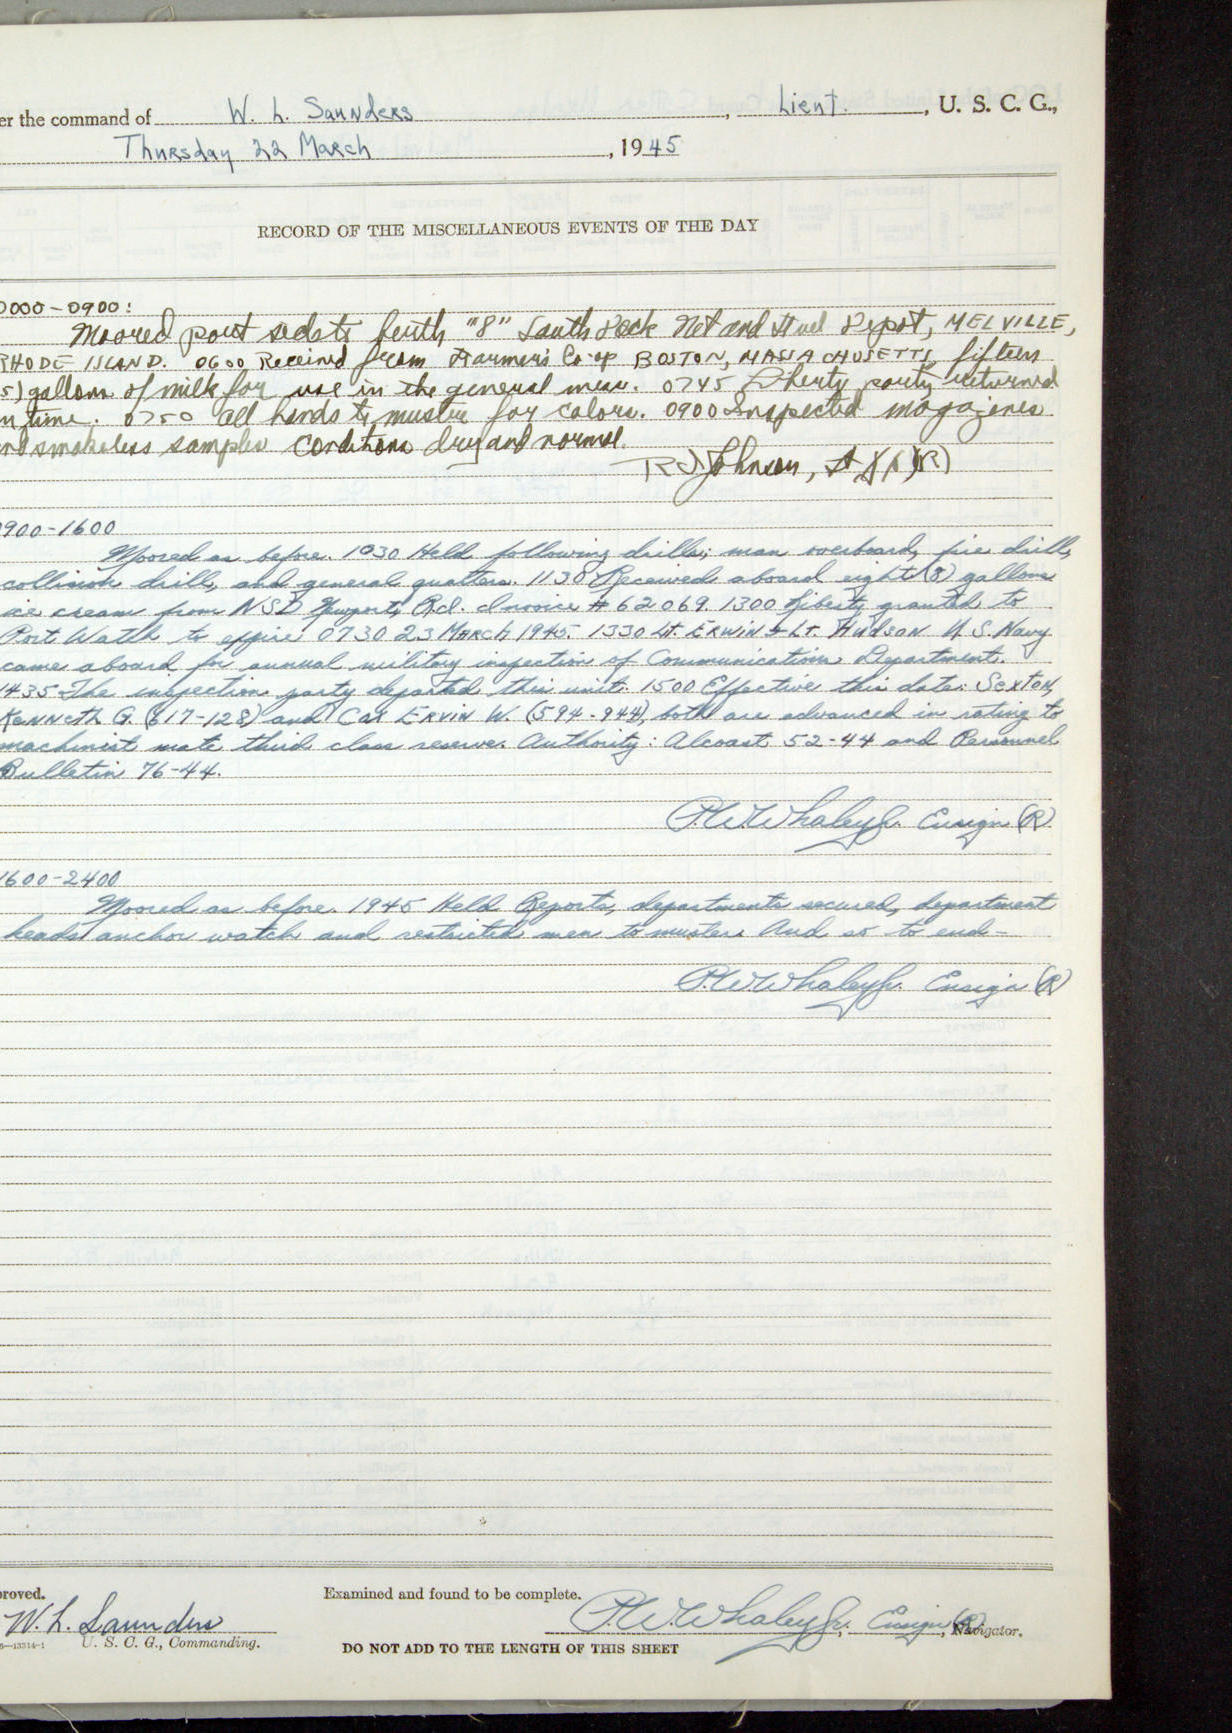 er the command of W. L. Saunders, Lieut., U. S. C. G.,
Thursday 22 March, 1945
RECORD OF THE MISCELLANEOUS EVENTS OF THE DAY
0000-0900:
Moored port side to berth "8" South Dock Net and Fuel Depot, MELVILLE,
RHODE ISLAND. 0600 Received from Farmer's Co-op BOSTON, MASSACHUSETTS, fifteen
5) gallons of milk for use in the general mess. 0745 Liberty party returned
n time. 0750 All hands to muster for colors. 0900 Inspected magazines
nd smokeless samples conditions dry and normal.
R J Johnson, (R)
900-1600
Moored as before. 1030 Held following drills: man overboard, fire drill,
collision drill, and general quarters. 1130 Received aboard eight (8) gallons
ice cream from NSD Newport, R.I. Invoice # 62069. 1300 Liberty granted to
Port Watch to expire 0730 23 March 1945. 1330 Lt. Erwin & Lt. Hudson U.S. Navy
came aboard for annual military inspection of Communications Department.
1435 The inspection party departed this unit. 1500 Effective this date: Sexton,
Kenneth G. (617-128) and Cox Ervin W. (594-944), both are advanced in rating to
machinist mate third class reserve. Authority: Alcoast 52-44 and Personnel
Bulletin 76-44.
P.W. Whaley Jr. Ensign (R)
1600-2400
Moored as before. 1945 Held Reports, departments secured, department
heads anchor watch and restricted men to muster. And so to end-
P.W. Whaley Jr. Ensign (R)
proved.
Examined and found to be complete.
W. L. Saunders
P.W. Whaley Jr., Ensign (R), Navigator.
6—13314-1 U. S. C. G., Commanding.
DO NOT ADD TO THE LENGTH OF THIS SHEET